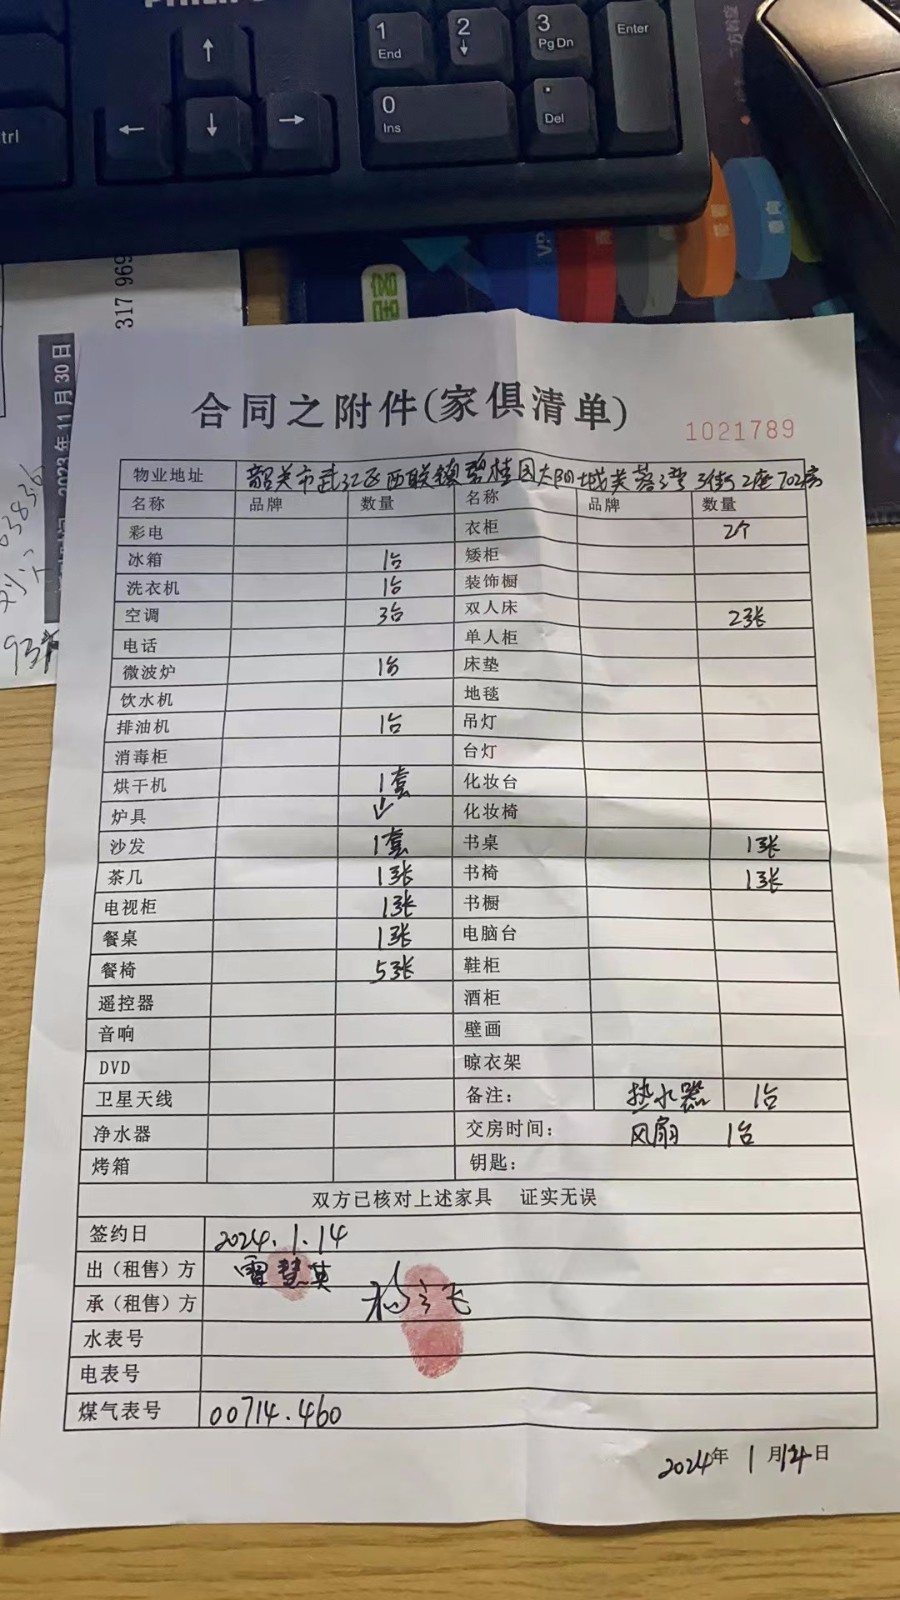 1
End
2
3
Pg Dn
Enter
0
Ins
Del
317 969
2023年11月30日
合同之附件(家俱清单)
1021789
物业地址 韶关市武江区西联镇碧桂园太阳城芙蓉湾3街2座702房
名称 品牌 数量 名称 品牌 数量
彩电 衣柜 2个
冰箱 1台 矮柜
洗衣机 1台 装饰橱
空调 3台 双人床 2张
电话 单人柜
微波炉 1台 床垫
饮水机 地毯
排油机 1台 吊灯
消毒柜 台灯
烘干机 1套 化妆台
炉具 化妆椅
沙发 1套 书桌 1张
茶几 1张 书椅 1张
电视柜 1张 书橱
餐桌 1张 电脑台
餐椅 5张 鞋柜
遥控器 酒柜
音响 壁画
DVD 晾衣架
卫星天线 备注: 热水器 1台
净水器 交房时间: 风扇 1台
烤箱 钥匙:
双方已核对上述家具 证实无误
签约日 2024.1.14
出(租售)方 雷慧英
承(租售)方
水表号
电表号
煤气表号 00714.460
2024年1月14日